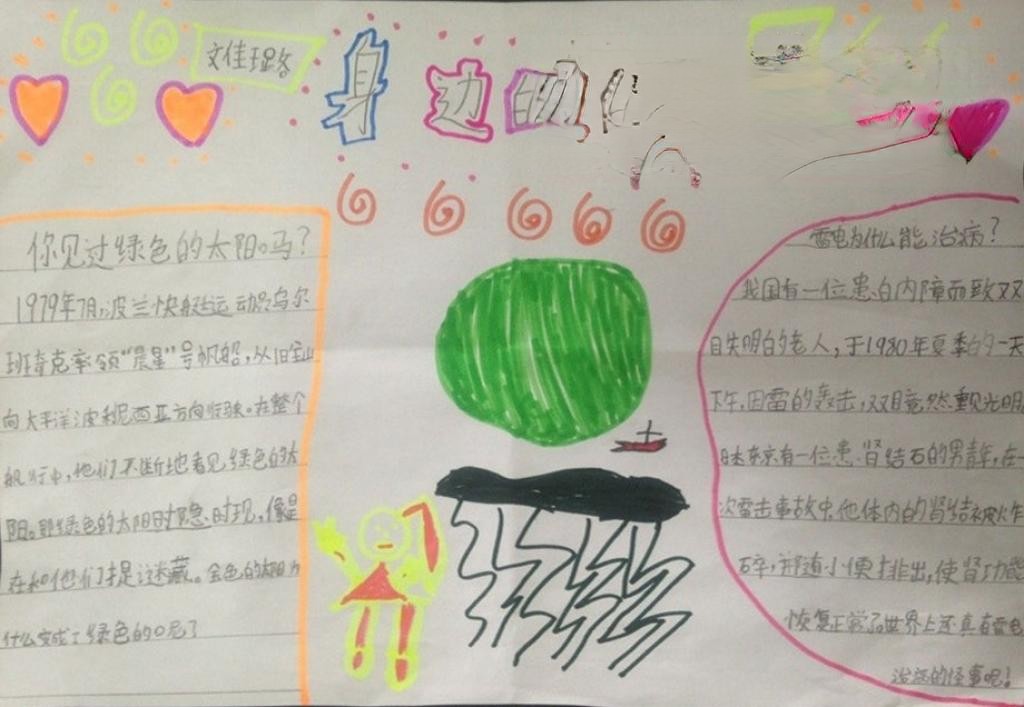 文佳璐
身边的
你见过绿色的太阳吗?
1979年7月,波兰快艇运动员乌尔
班奇克率领“晨星”号帆船,从旧金山
向太平洋波利尼西亚方向行驶。在整个
航行中,他们不断地看见绿色的太
阳。那绿色的太阳时隐时现,像是
在和他们捉迷藏。金色的太阳为
什么变成了绿色的呢?
雷电为什么能治病?
我国有一位患白内障而致双
目失明的老人,于1980年夏季的一天
下午,因雷的轰击,双目竟然重见光明
日本东京有一位患肾结石的男青年,在一
次雷击事故中,他体内的肾结被炸
碎,并随小便排出,使肾功能
恢复正常了。世界上还真有雷电
治病的怪事呢!